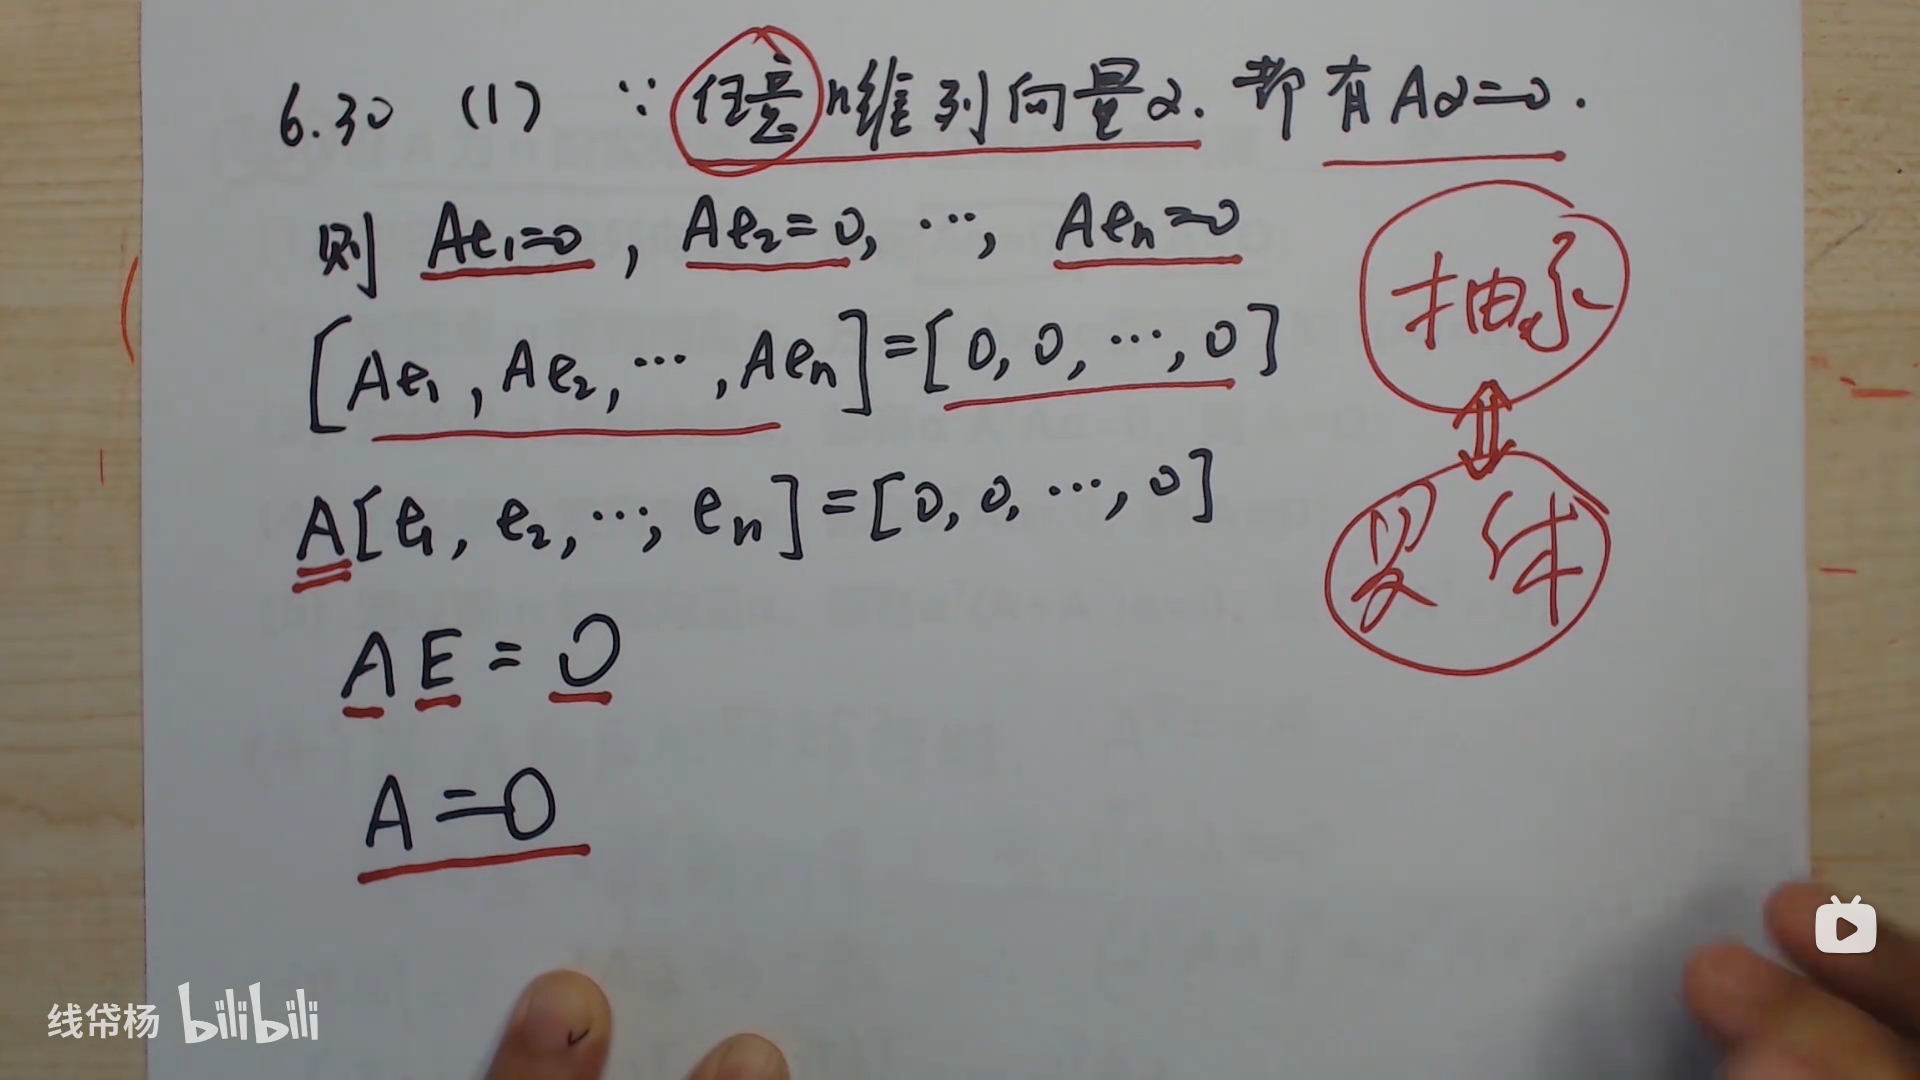 6.30 (1) ∵ 任意n维列向量α. 都有Aα=0.
则 Ae₁=0, Ae₂=0, …, Aeₙ=0
[Ae₁, Ae₂, …, Aeₙ]=[0, 0, …, 0]
抽象
A[e₁, e₂, …, eₙ]=[0, 0, …, 0]
具体
AE=O
A=O
线帒杨 bilibili